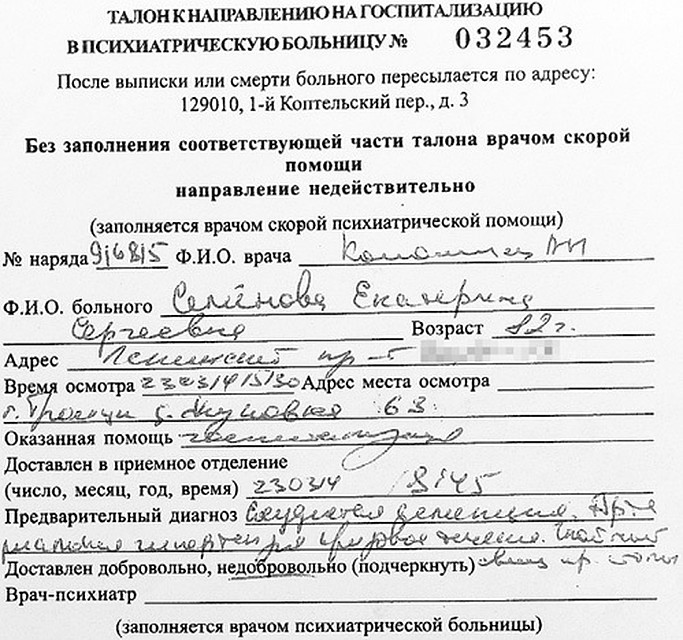 ТАЛОН К НАПРАВЛЕНИЮ НА ГОСПИТАЛИЗАЦИЮ
В ПСИХИАТРИЧЕСКУЮ БОЛЬНИЦУ № 032453
После выписки или смерти больного пересылается по адресу:
129010, 1-й Коптельский пер., д. 3
Без заполнения соответствующей части талона врачом скорой
помощи
направление недействительно
(заполняется врачом скорой психиатрической помощи)
№ наряда 916815 Ф.И.О. врача
Ф.И.О. больного Семёнова Екатерина
Сергеевна Возраст 82 г.
Адрес Ленинский пр-т
Время осмотра Адрес места осмотра
г. Троицк 63
Оказанная помощь госпитализация
Доставлен в приемное отделение
(число, месяц, год, время) 230314 18 45
Предварительный диагноз деменция. Арте
риальная гипертензия кризовое течение.
Доставлен добровольно, недобровольно (подчеркнуть)
Врач-психиатр
(заполняется врачом психиатрической больницы)